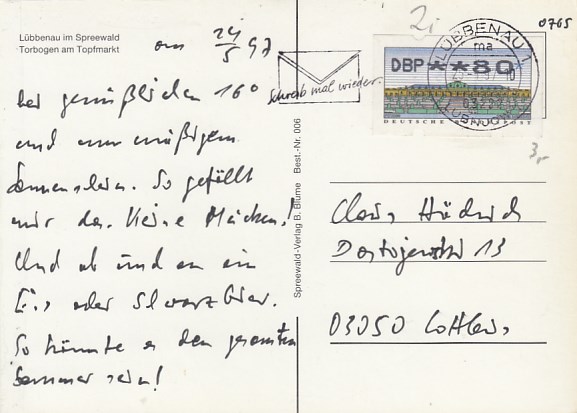 Lübbenau im Spreewald
Torbogen am Topfmarkt
am 24/5 97
bei gemütlichen 16°
und nur mäßigem
Sonnenschein. So gefällt
mir das. Keine Mücken!
Und ab und an ein
Eis oder Schwarzbier.
So könnte es den gesamten
Sommer sein!
Spreewald-Verlag B. Blume Best.-Nr. 006
Schreib mal wieder.
2,-
LÜBBENAU 1
ma
03222
DBP **80
DEUTSCHE BUNDESPOST
0765
3,-
Claus
Dostojewski 13
03050 Cottbus